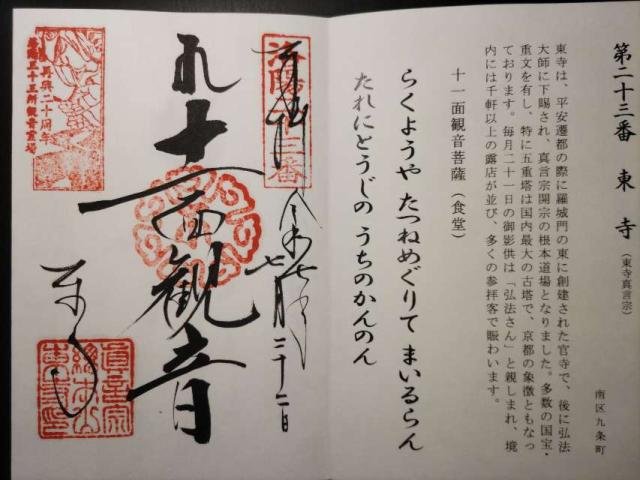 第二十三番 東寺(東寺真言宗)
南区九条町
東寺は、平安遷都の際に羅城門の東に創建された官寺で、後に弘法
大師に下賜され、真言宗開宗の根本道場となりました。多数の国宝・
重文を有し、特に五重塔は国内最大の古塔で、京都の象徴ともなっ
ております。毎月二十一日の御影供は「弘法さん」と親しまれ、境
内には千軒以上の露店が並び、多くの参拝客で賑わいます。
十一面観音菩薩(食堂)
らくようや たつねめぐりて まいるらん
たれにとうじの うちのかんのん
洛陽二十三番
奉拝
令和七年
七月二十二日
十一面観音
東寺
再興二十周年
洛陽三十三所観音霊場
真言宗
総本山
東寺印